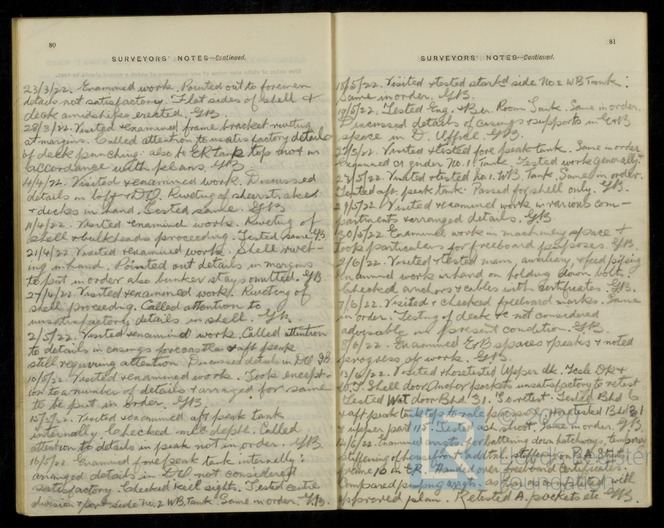 80
SURVEYORS' NOTES—Continued.
23/3/22. Examined work. Pointed out to foreman
details not satisfactory. Flat sides of shell &
deck amidships erected. GHB
28/3/22. Visited & examined frame bracket riveting
at margins. Called attention to unsatisfactory details
of deck panching: also & ER tank tops not in
accordance with plans. GHB
4/4/22. Visited & examined work. Discussed
details in loft & DO. Riveting of sheerstrakes
& decks in hand. Tested same. GHB
11/4/22. Visited & examined work. Riveting of
shell & bulkheads proceeding. Tested same. GHB
21/4/22. Visited & examined work. Shell rivet-
ing in hand. Pointed out details in margins
to put in order also bunker stays omitted. GHB
27/4/22. Visited & examined work. Riveting of
shell proceeding. Called attention to
unsatisfactory details in shell. GHB
2/5/22. Visited & examined work. Called attention
to details in casings forecastle & aft peak
still requiring attention. Discussed details in DO. GHB
10/5/22. Visited & examined works. Took except-
ion to a number of details & arranged for same
to be put in order. GHB
15/5/22. Visited & examined aft peak tank
internally. Checked mld depth. Called
attention to details in peak not in order. GHB
16/5/22. Examined fore peak tank internally:
arranged details in not considered
satisfactory. Checked keel sights. Tested centre
division & port side No. 2 WB Tank. Same in order. GHB
81
SURVEYORS' NOTES—Continued.
18/5/22. Visited & tested starbd side No 2 WB Tank:
Same in order. GHB.
19/5/22. Tested Eng. & Boiler Room Tank. Same in order.
Discussed details of casings & supports in E&B
space in D. Office. GHB.
Visited & tested fore peak tank. Same in order
Examined No. 1. Tank. Tested work generally.
Visited & tested No 1. WB. Tank. Same in order.
Tested aft peak tank. Passed for shell only. GHB.
29/5/22. Visited & examined work in various com-
partments & arranged details. GHB
30/5/22. Examined work in machinery space &
took particulars for freeboard purposes. GHB.
2/6/22. Visited & tested main, auxiliary, & feed piping
Examined work in hand on holding down bolts.
Checked anchors & cables with certificates. GHB.
7/6/22. Visited & checked freeboard marks. Same
in order. Testing of deck &c not considered
advisable in present condition. GHB.
Examined E&B spaces & peaks & noted
progress of work. GHB.
13/6/22. Visited & hosetested Upper dk. Focle Dk &
W.T Shell door. Anchor pockets unsatisfactory to retest
Tested W.T door Bhd 31. Tested Bhd 6
& aft peak tank top Hosetested Bhd 31
& upper part 115. Tested ash shoot. Same in order. GHB
Examined angls for battening down hatchways, temporary
stiffening of
frame 16 in ER. Handed over freeboard Certificates.
Compared pumping arrgt as fitted with
approved plan. Retested A. pockets etc GHB.
Lloyd's Register
Foundation